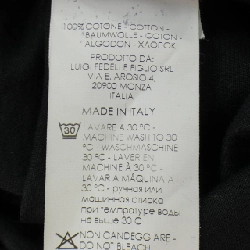 100% COTONE - COTTON -
BAUMWOLLE - COTON -
ALGODON - ХЛОПОК
PRODOTTO DA:
LUIGI FEDELI E FIGLIO SRL
VIA E. AROSIO 4,
20900 MONZA
ITALIA
MADE IN ITALY
30
LAVARE A 30 °C -
MACHINE WASH TO 30
°C - WASCHMASCHINE
30 °C - LAVER EN
MACHINE À 30 °C -
LAVAR A MÁQUINA A
30 °C - ручная или
машинная стирка
при температуре воды
не выше 30 C
NON CANDEGGIARE -
DO NOT BLEACH